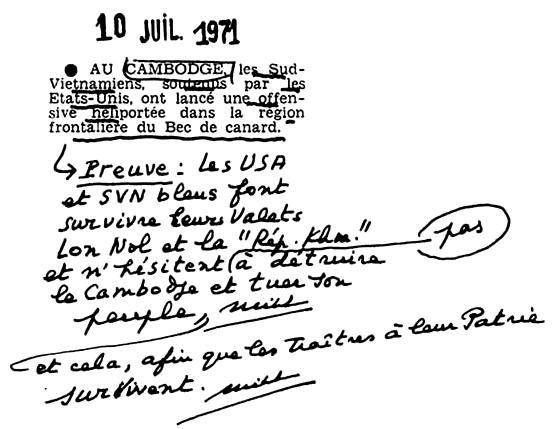 10 JUIL. 1971
● AU CAMBODGE, les Sud-
Vietnamiens, soutenus par les
Etats-Unis, ont lancé une offen-
sive héliportée dans la région
frontalière du Bec de canard.
↳ Preuve : Les USA
et SVN bleus font
survivre leurs Valets
Lon Nol et la "Rép. Khm."
et n'hésitent à détruire
pas
le Cambodge et tuer son
peuple,
et cela, afin que les Traîtres à leur Patrie
survivent.